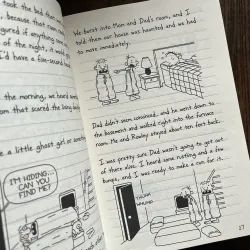 took the bed that
because that
gured if anything
of the night, it would
I'd have a five-second
the morning, we heard
that scared the living
e a little ghost girl or
I'M HIDING...
CAN YOU
FIND ME?
We burst into Mom and Dad's room, and I
told them our house was haunted and we had
to move immediately.
Dad didn't seem convinced, and he went down to
the basement and walked right into the furnace
room. Me and Rowley stayed about ten feet back.
I was pretty sure Dad wasn't going to get out
of there alive. I heard some rustling and a few
bumps, and I was ready to make a run for it.
27